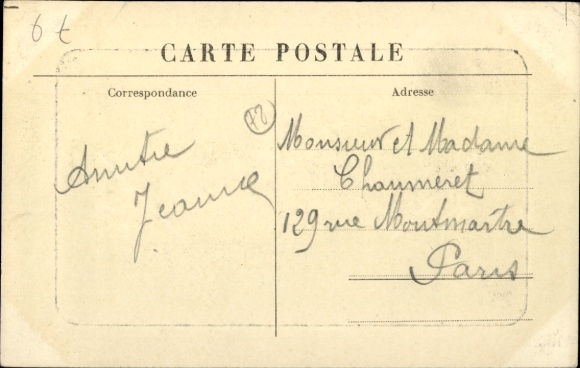 6 t
CARTE POSTALE
Correspondance
Adresse
72
Jeanne
Monsieur et Madame
Chaumeret
129 rue Montmartre
Paris